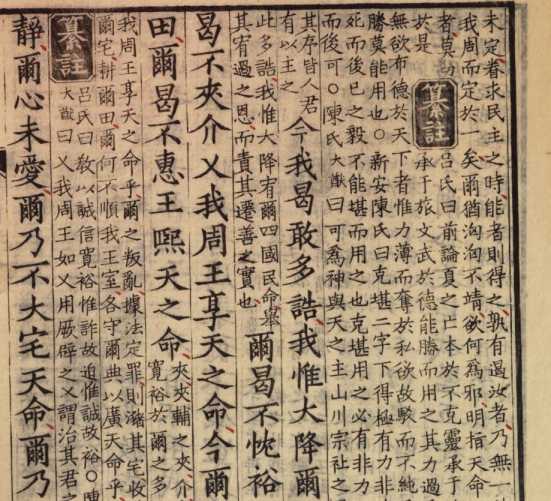 未定眷求民主之時能者則得之孰有遏汝者乃無一
我周而定於一矣爾猶洶洶不靖欲何爲邪明指天命
者莫切
於是
纂註
呂氏曰前論夏之亡本於不克靈承于
承于旅文武於德能勝而用之其力過
無欲布德於天下者惟力薄而奪於私欲故駁而不純
勝莫能用也○新安陳氏曰克堪二字下得極有力非
死而後已之毅不能堪而用之也克堪用之必有非力
而後可○陳氏大猷曰可爲神與天之主山川宗社之
其序皆人君
有以主之
今我曷敢多誥我惟大降爾
此多誥我惟大降宥爾四國民命舉
其宥過之恩而責其遷善之實也
爾曷不忱裕
曷不夾介乂我周王享天之命今爾
田爾曷不惠王熙天之命
夾夾輔之夾介
寬裕於爾之多
我周王享天之命乎爾之叛亂據法定罪則瀦其宅收
爾宅耕爾田爾何不順我王室各守爾典以廣天命乎
纂註
呂氏曰教以誠信寬裕惟詐故迫惟誠故裕○陳
大猷曰乂我周王如乂用厥辟之乂謂治其君之
靜爾心未愛爾乃不大宅天命爾乃